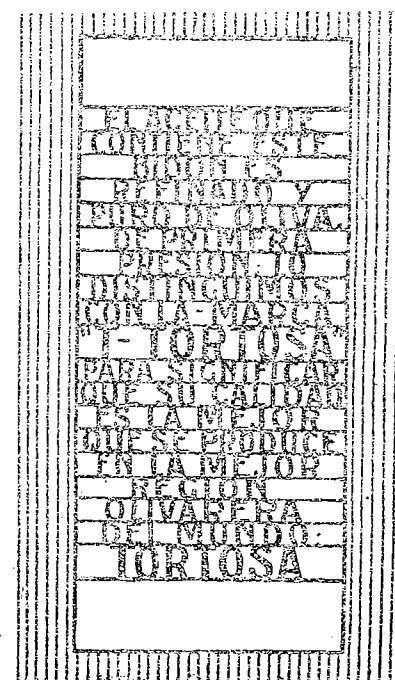 EL ACEITE QUE
CONTIENE ESTE
BIDON ES
REFINADO Y
PURO DE OLIVA,
DE PRIMERA
PRESION. LO
DISTINGUIMOS
CON LA MARCA
"I-TORTOSA"
PARA SIGNIFICAR
QUE SU CALIDAD
ES LA MEJOR
QUE SE PRODUCE
EN LA MEJOR
REGION
OLIVARERA
DEL MUNDO:
TORTOSA